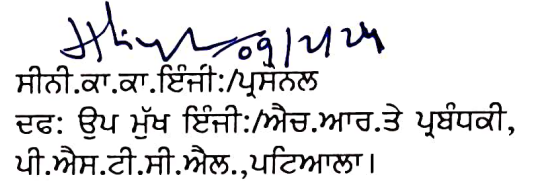 09/2/24
ਸੀਨੀ.ਕਾ.ਕਾ.ਇੰਜੀ:/ਪ੍ਰਸੋਨਲ
ਦਫ: ਉਪ ਮੁੱਖ ਇੰਜੀ:/ਐਚ.ਆਰ.ਤੇ ਪ੍ਰਬੰਧਕੀ,
ਪੀ.ਐਸ.ਟੀ.ਸੀ.ਐਲ.,ਪਟਿਆਲਾ।